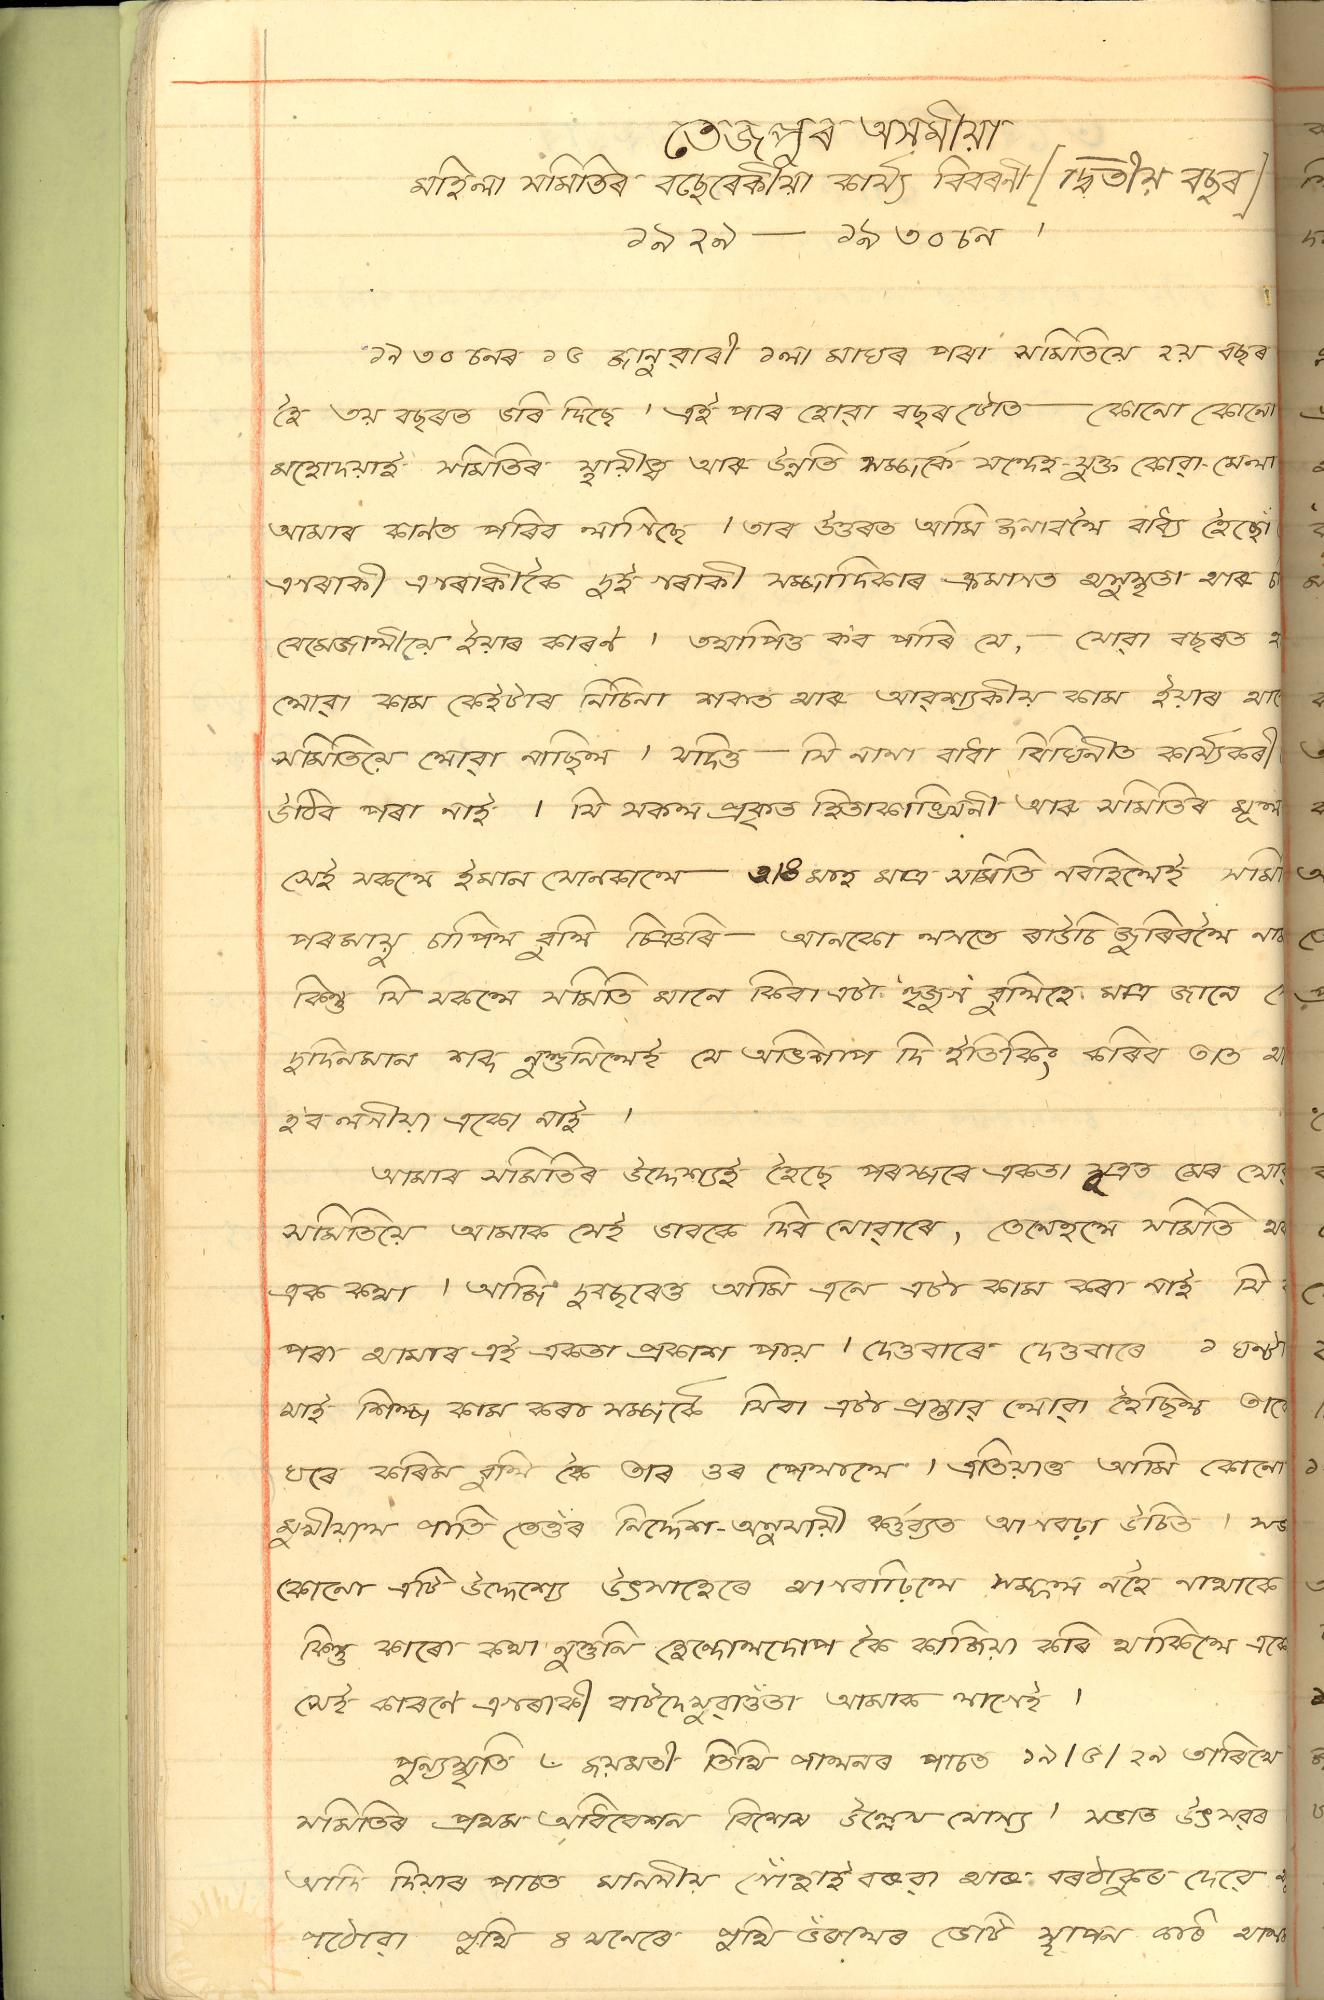 তেজপুৰ অসমীয়া
মহিলা সমিতিৰ বছেৰেকীয়া কাৰ্য্য বিবৰনী [দ্বিতীয় বছৰ]
১৯২৯ — ১৯৩০ চন ।
১৯৩০ চনৰ ১৫ জানুৱাৰী ১লা মাঘৰ পৰা সমিতিয়ে ২য় বছৰ
হৈ ৩য় বছৰত ভৰি দিছে । এই পাৰ হোৱা বছৰটোত — কোনো কোনো
মহোদয়াই সমিতিৰ স্থায়ীত্ব আৰু উন্নতি সম্পৰ্কে সন্দেহ-যুক্ত কোৱা-মেলা
আমাৰ কানত পৰিব লাগিছে । তাৰ উত্তৰত আমি জনাবলৈ বাধ্য হৈছোঁ
এগৰাকী এগৰাকীকৈ দুই গৰাকী সম্পাদিকাৰ ক্ৰমাগত অসুস্থতা আৰু
বেমেজালীয়ে ইয়াৰ কাৰণ । তথাপিও ক'ব পাৰি যে, — যোৱা বছৰত
লোৱা কাম কেইটাৰ নিচিনা শকত আৰু আৱশ্যকীয় কাম ইয়াৰ আগে
সমিতিয়ে লোৱা নাছিল । যদিও — সি নানা বাধা বিঘিনীত কাৰ্য্যকৰী
উঠিব পৰা নাই । যি সকল প্ৰকৃত হিতাকাঙ্ক্ষিনী আৰু সমিতিৰ মূল
সেই সকলে ইমান সোনকালে — ৩/৪ মাহ মাত্ৰ সমিতি নবহিলেই
পৰমায়ু চাপিল বুলি চিঞৰি — আনকো লগতে ৰাউচি জুৰিবলৈ
কিন্তু যি সকলে সমিতি মানে কিবা এটা 'হুজুগ' বুলিহে মাত্ৰ জানে
দুদিনমান শব্দ নুশুনিলেই যে অভিশাপ দি ইতিকিং কৰিব তাত
হ'ব লগীয়া একো নাই ।
আমাৰ সমিতিৰ উদ্দেশ্যই হৈছে পৰস্পৰে একতা সূত্ৰত মেৰ
সমিতিয়ে আমাক সেই ভাবকে দিব নোৱাৰে, তেনেহলে সমিতি
এক কথা । আজি দুবছৰেও আমি এনে এটা কাম কৰা নাই যি
পৰা আমাৰ এই একতা প্ৰকাশ পায় । দেওবাৰে দেওবাৰে ১ ঘন্টা
মাই শিল্প কাম কৰা সম্পৰ্কে যিবা এটা প্ৰস্তাৱ লোৱা হৈছিল
ঘৰে কৰিম বুলি কৈ তাৰ ওৰ পেলালে । এতিয়াও আমি কোনো
মুখীয়াল পাতি তেওঁৰ নিৰ্দ্দেশ-অনুযায়ী কৰ্ত্তব্যত আগবঢ়া উচিত ।
কোনো এটি উদ্দেশ্যে উৎসাহেৰে আগবাঢ়িলে সফল নহৈ নাথাকে
কিন্তু কাৰো কথা নুশুনি হেন্দোলদোপ কৈ কাজিয়া কৰি থাকিলে
সেই কাৰণে এগৰাকী বাটদেখুৱাওঁতা আমাক লাগেই ।
পুন্যস্মৃতি ৺ জয়মতী তিথি পালনৰ পাচত ১৯/৫/২৯ তাৰিখে
সমিতিৰ প্ৰথম অধিবেশন বিশেষ উল্লেখ যোগ্য । সভাত উৎসৱৰ
আদি দিয়াৰ পাচত মাননীয় গোঁহাই বৰুৱা আৰু বৰঠাকুৰ দেৱে
পঠোৱা পুথি ৪ খনেৰে পুথি ভঁৰালৰ ভেটি স্থাপন কৰি